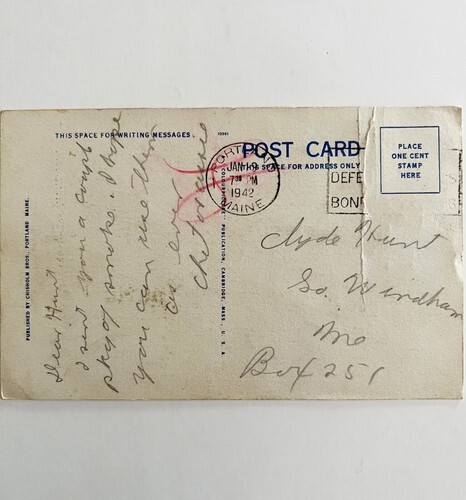 THIS SPACE FOR WRITING MESSAGES
POST CARD
THIS SPACE FOR ADDRESS ONLY
PLACE
ONE CENT
STAMP
HERE
PORTLAND
JAN 12
7 PM
1942
MAINE
DEFE
BON
PUBLISHED BY CHISHOLM BROS., PORTLAND, MAINE.
PUBLICATION, CAMBRIDGE, MASS., U. S. A.
Dear Hunt
I sent you a
pkg of smokes. I hope
you can use them
as ever
Chet
Clyde Hunt
So. Windham
Me
Box 251